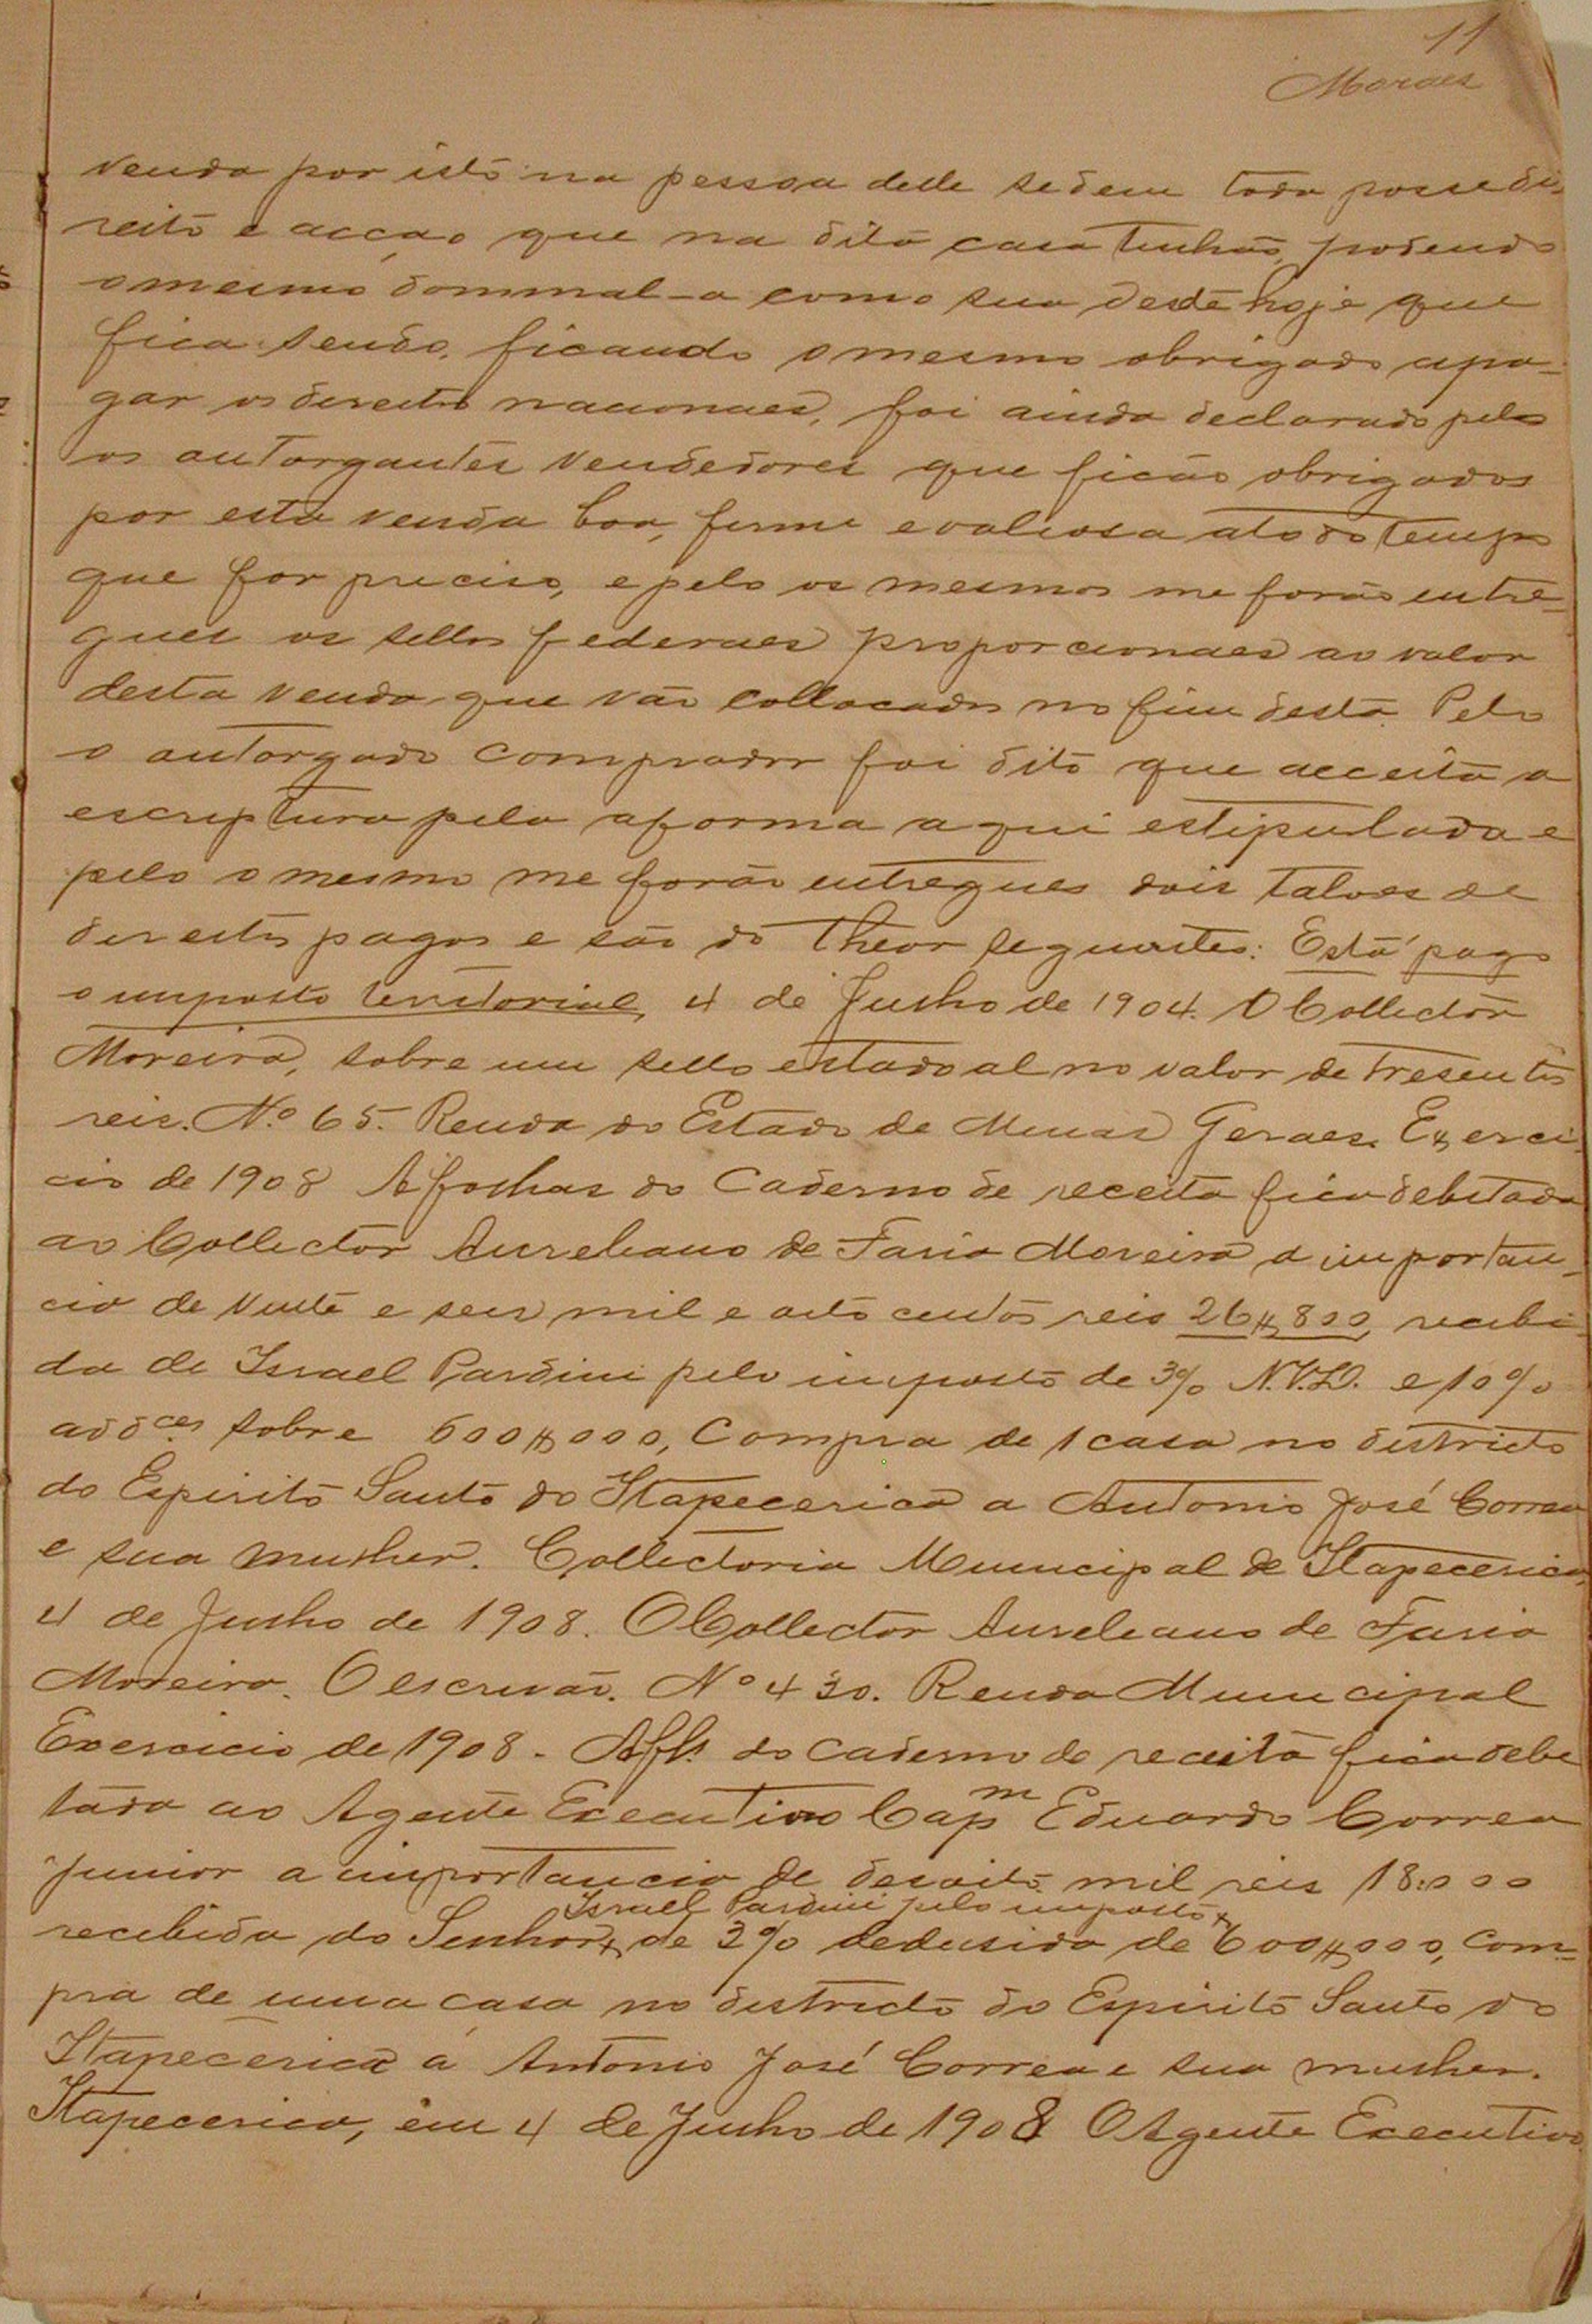 11
Moraes
venda por isto na pessoa delle sedem toda posse di-
reito e acção que na dita casa tinhão, podendo
o mesmo dominal-a como sua desde hoje que
fica sendo, ficando o mesmo obrigado apa-
gar os direitos nacionaes, foi ainda declarado pelos
os outorgantes vendedores que ficão obrigados
por esta venda boa, firme e valiosa atodo tempo
que for preciso, e pelo os mesmos me forão entre-
gues os sellos federaes proporcionaes ao valor
desta venda que vão collocados no fim desta. Pelo
o outorgado comprador foi dito que acceita a
escriptura pela aforma aqui estipulada e
pelo o mesmo me forão entregues dois talões de
direitos pagos e são do theor seguintes: Está pago
o imposto territorial, 4 de Junho de 1904. O Collector
Moreira, sobre um sello estadoal no valor de tresentos
reis. Nº 65. Renda do Estado de Minas Geraes. Exerci-
cio de 1908 Afolhas do Caderno de receita fica debitada
ao Collector Aureleano de Faria Moreira a importan-
cia de vinte e seis mil e oito centos reis 26$800, recebi
da de Israel Pardini pelo imposto de 3% N.V.D. e 10%
addces sobre 600$000, Compra de 1 casa no districto
do Espirito Santo do Itapecerica a Antonio José Correa
e sua mulher. Collectoria Municipal de Itapecerica,
4 de Junho de 1908. O Collector Aureleano de Faria
Moreira. O escrivão. Nº 430. Renda Municipal
Exercicio de 1908. Afls do caderno de receita fica debe
tada ao Agente Executivo Capm Eduardo Correa
Junior a importancia de desoito mil reis 18:000
Israel Pardini pelo imposto
recebida do Senhor de 3% dedusida de 600$000, com-
pra de uma casa no districto do Espirito Santo do
Itapecerica á Antonio José Correa e sua mulher.
Itapecerica, em 4 de Junho de 1908 O Agente Executivo